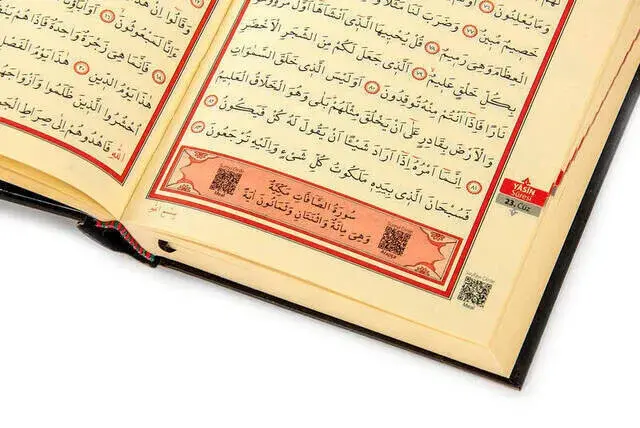 وَمَا يُعْلِنُونَ
خَصِيمٌ مُبِينٌ ﴿٧٧﴾ وَضَرَبَ لَنَا مَثَلًا
الْعِظَامَ وَهِيَ رَمِيمٌ ﴿٧٨﴾ قُلْ يُحْيِيهَا الَّذِي أَنْشَأَهَا أَوَّلَ
بِكُلِّ خَلْقٍ عَلِيمٌ ﴿٧٩﴾ الَّذِي جَعَلَ لَكُمْ مِنَ الشَّجَرِ الْأَخْضَرِ
نَارًا فَإِذَا أَنْتُمْ مِنْهُ تُوقِدُونَ ﴿٨٠﴾ أَوَلَيْسَ الَّذِي خَلَقَ السَّمٰوَاتِ
وَالْأَرْضَ بِقَادِرٍ عَلٰى أَنْ يَخْلُقَ مِثْلَهُمْ بَلٰى وَهُوَ الْخَلَّاقُ الْعَلِيمُ ﴿٨١﴾
إِنَّمَا أَمْرُهُ إِذَا أَرَادَ شَيْئًا أَنْ يَقُولَ لَهُ كُنْ فَيَكُونُ ﴿٨٢﴾
فَسُبْحَانَ الَّذِي بِيَدِهِ مَلَكُوتُ كُلِّ شَيْءٍ وَإِلَيْهِ تُرْجَعُونَ ﴿٨٣﴾
سُورَةُ الصَّافَّاتِ مَكِّيَّةٌ
وَهِيَ مِائَةٌ وَاثْنَتَانِ وَثَمَانُونَ آيَةً
YÂSİN
Sûresi
23. Cüz
Meal
وَقَالُوا إِنْ هٰذَا
ءَإِنَّا لَمَبْعُوثُونَ ﴿١٦﴾ أَوَآبَاؤُنَا
فَإِنَّمَا هِيَ زَجْرَةٌ وَاحِدَةٌ فَإِذَا هُمْ
هٰذَا يَوْمُ الدِّينِ ﴿٢٠﴾ هٰذَا يَوْمُ الْفَصْلِ
احْشُرُوا الَّذِينَ ظَلَمُوا وَأَزْوَاجَهُمْ
اللّٰهِ فَاهْدُوهُمْ إِلٰى صِرَاطِ